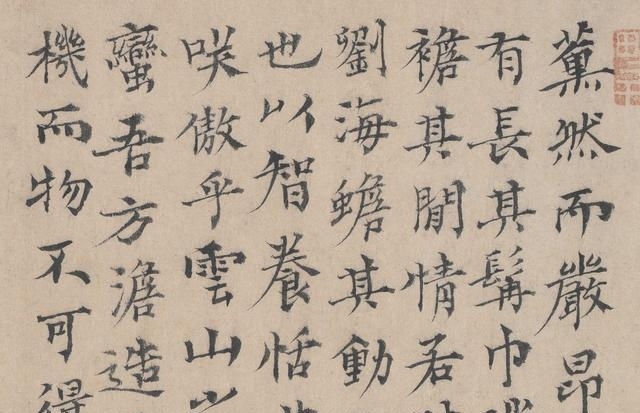 薰然而嚴昂
有長其髯巾
襜其閒情若
劉海蟾其動
也以智養恬
咲傲乎雲山
蠻吾方澹造
機而物不可得